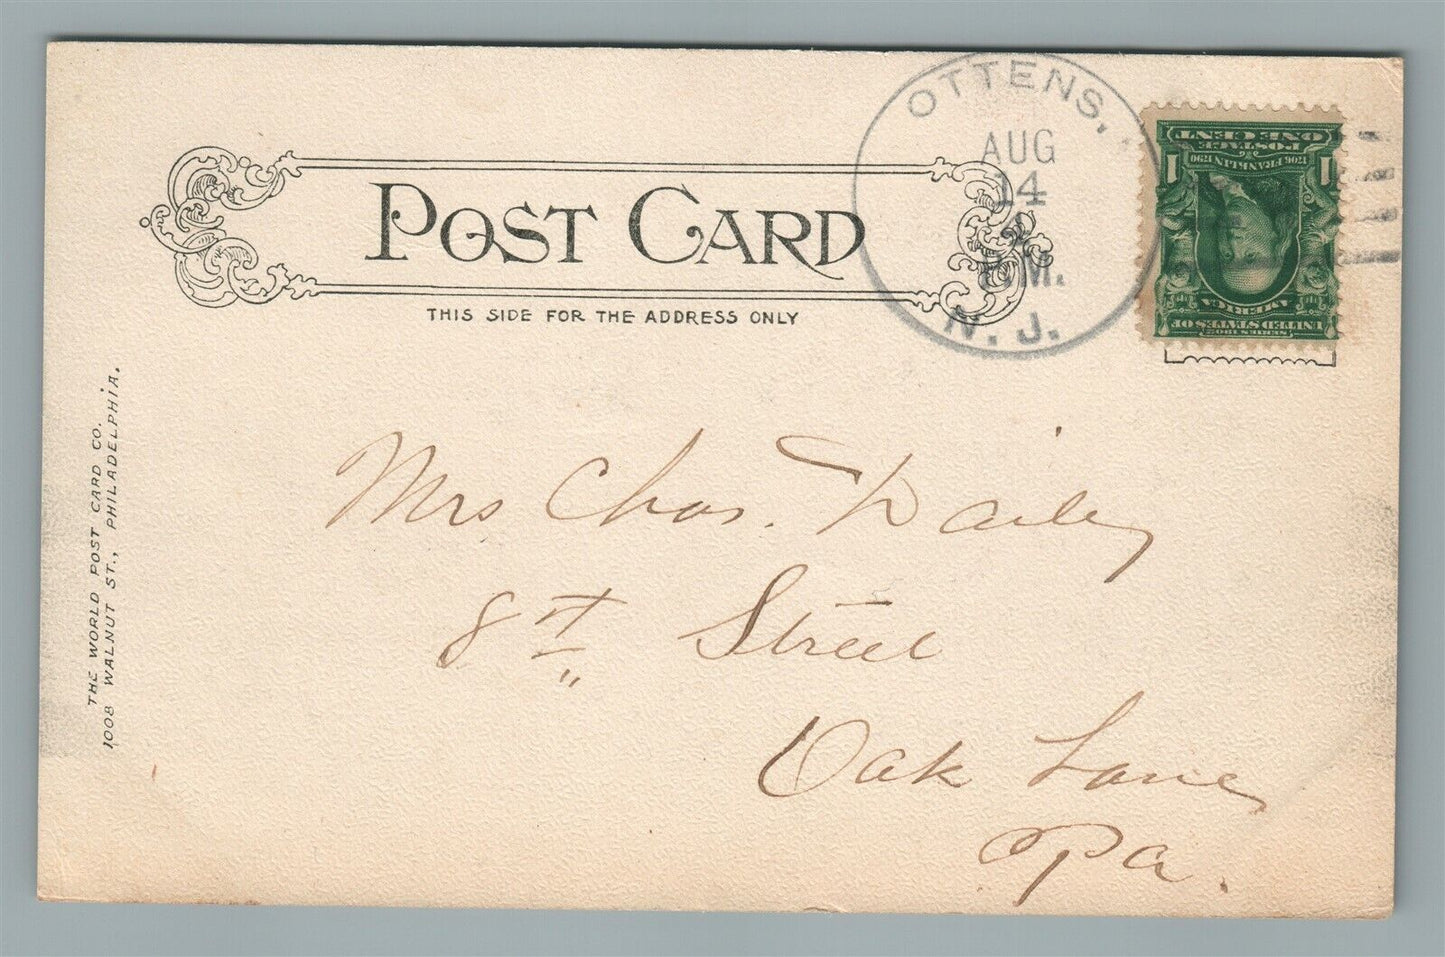 POST CARD
THIS SIDE FOR THE ADDRESS ONLY
OTTENS,
AUG
14
P.M.
N.J.
POSTAGE
ONE CENT
1706 FRANKLIN 1790
1 1
AMERICA
SERIES 1902
UNITED STATES OF
THE WORLD POST CARD CO.
1008 WALNUT ST., PHILADELPHIA.
Mrs Chas. Dailey
8st Street
Oak Lane,
Pa.